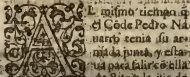 AL mismo tiempo
el Cõde Pedro Na
uarro tenia su ar
mada junta, y estau
ua para salir cõ ella